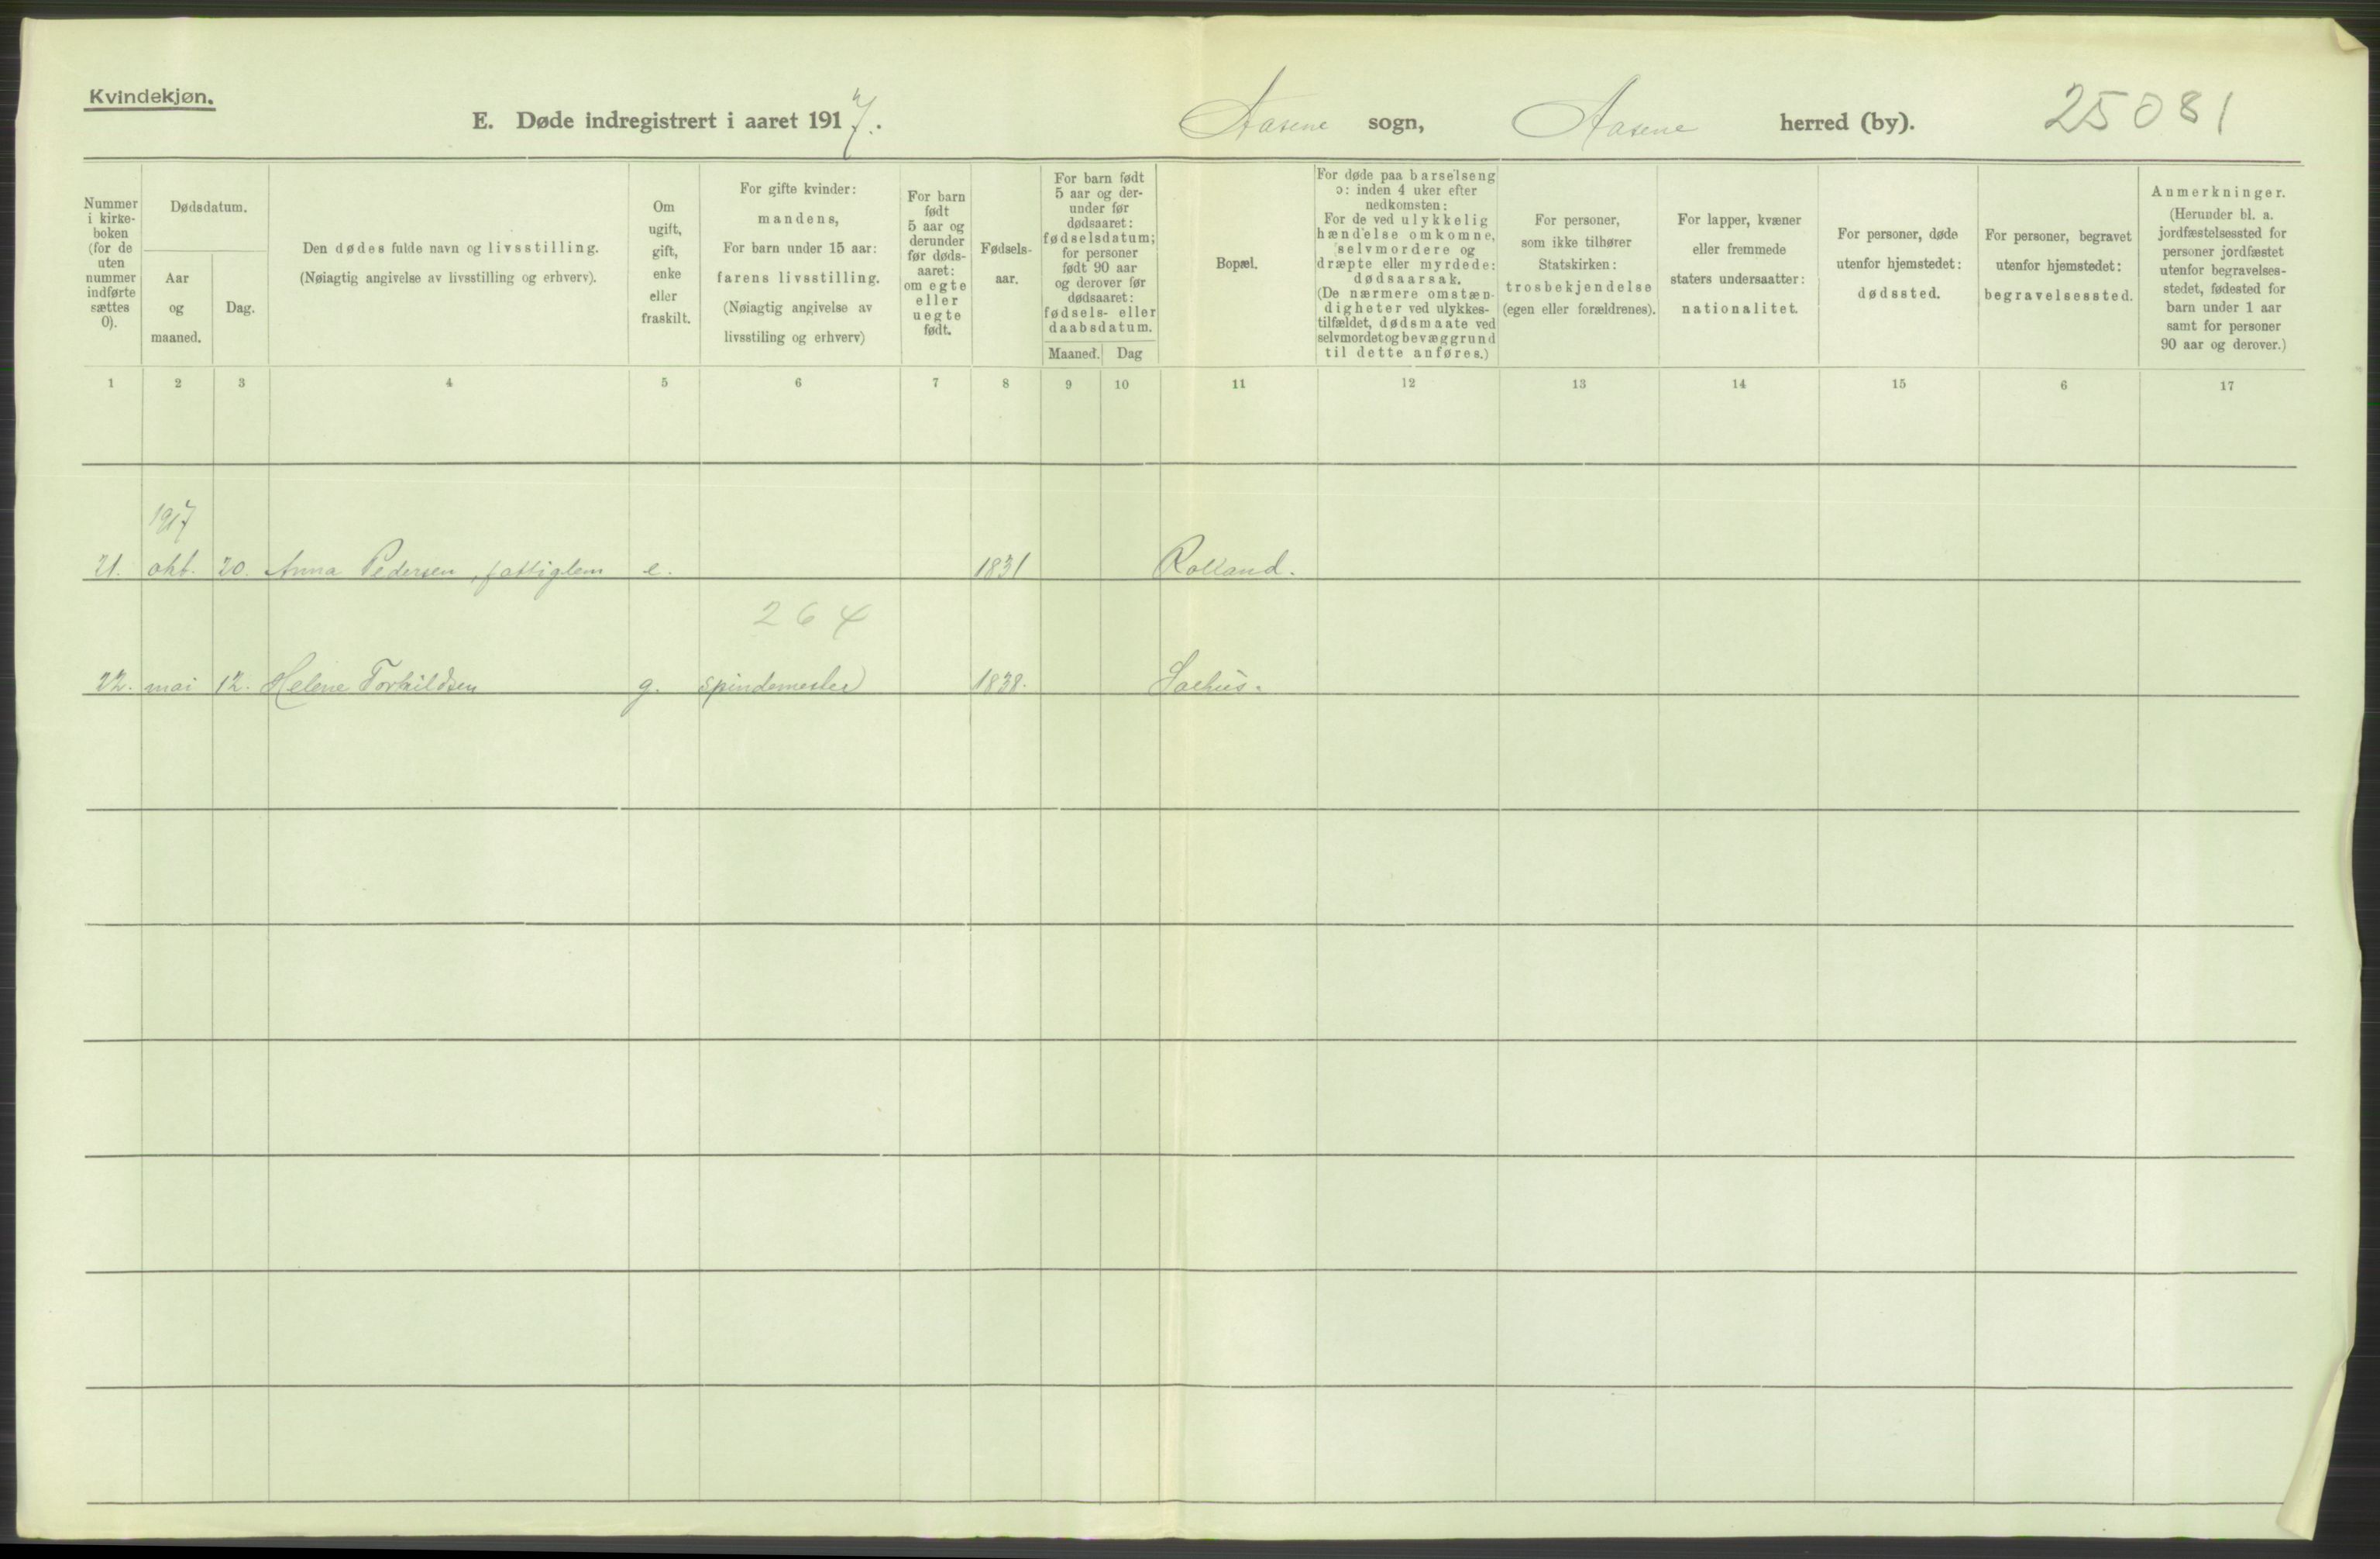 Kvindekjøn.
E. Døde indregistrert i aaret 1917. Aasene sogn, Aasene herred (by). 25081
Nummer i kirke- boken (for de uten nummer indførte sættes 0).
Dødsdatum.
Aar og maaned.
Dag.
Den dødes fulde navn og livsstilling.
(Nøiagtig angivelse av livsstilling og erhverv).
Om ugift, gift, enke eller fraskilt.
For gifte kvinder:
mandens,
For barn under 15 aar:
farens livsstilling.
(Nøiagtig angivelse av
livsstiling og erhverv)
For barn født 5 aar og derunder før døds- aaret: om egte eller uegte født.
Fødsels- aar.
For barn født 5 aar og der- under før dødsaaret: fødselsdatum; for personer født 90 aar og derover før dødsaaret: fødsels- eller daabsdatum.
Maaned. Dag
Bopæl.
For døde paa barselseng
ɔ: inden 4 uker efter
nedkomsten:
For de ved ulykkelig
hændelse omkomne,
selvmordere og
dræpte eller myrdede:
dødsaarsak.
(De nærmere omstæn-
digheter ved ulykkes-
tilfældet, dødsmaate ved
selvmordet og bevæggrund
til dette anføres.)
For personer,
som ikke tilhører
Statskirken:
trosbekjendelse
(egen eller forældrenes).
For lapper, kvæner
eller fremmede
staters undersaatter:
nationalitet.
For personer, døde
utenfor hjemstedet:
dødssted.
For personer, begravet
utenfor hjemstedet:
begravelsessted.
Anmerkninger.
(Herunder bl. a.
jordfæstelsessted for
personer jordfæstet
utenfor begravelses-
stedet, fødested for
barn under 1 aar
samt for personer
90 aar og derover.)
1 2 3 4 5 6 7 8 9 10 11 12 13 14 15 6 17
1917
21. okt. 20. Anna Pedersen, fattiglem e. 1831 Rolland.
264
22. mai 12. Helene Torkildsen g. spindemester 1838. Salhus.